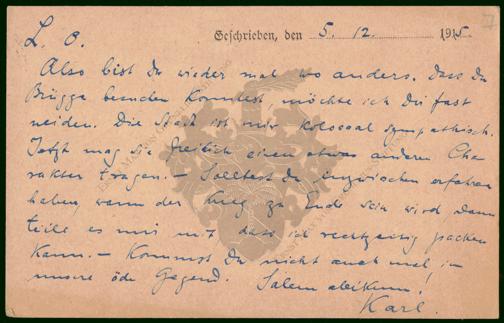 Geschrieben, den 5. 12. 1915.
L. O.
Also bist Du wieder mal wo anders. Dass Du
Brügge besuchen konntest, möchte ich Dir fast
neiden. Die Stadt ist mir kolossal sympathisch.
Jetzt mag sie freilich einen etwas anderen Cha-
rakter tragen. – Solltest Du inzwischen erfahren
haben, wann der Krieg zu Ende sein wird dann
teile es mir mit dass ich rechtzeitig packen
kann. – Kommst Du nicht auch mal in
unsere öde Gegend. Salem aleikum!
Karl.